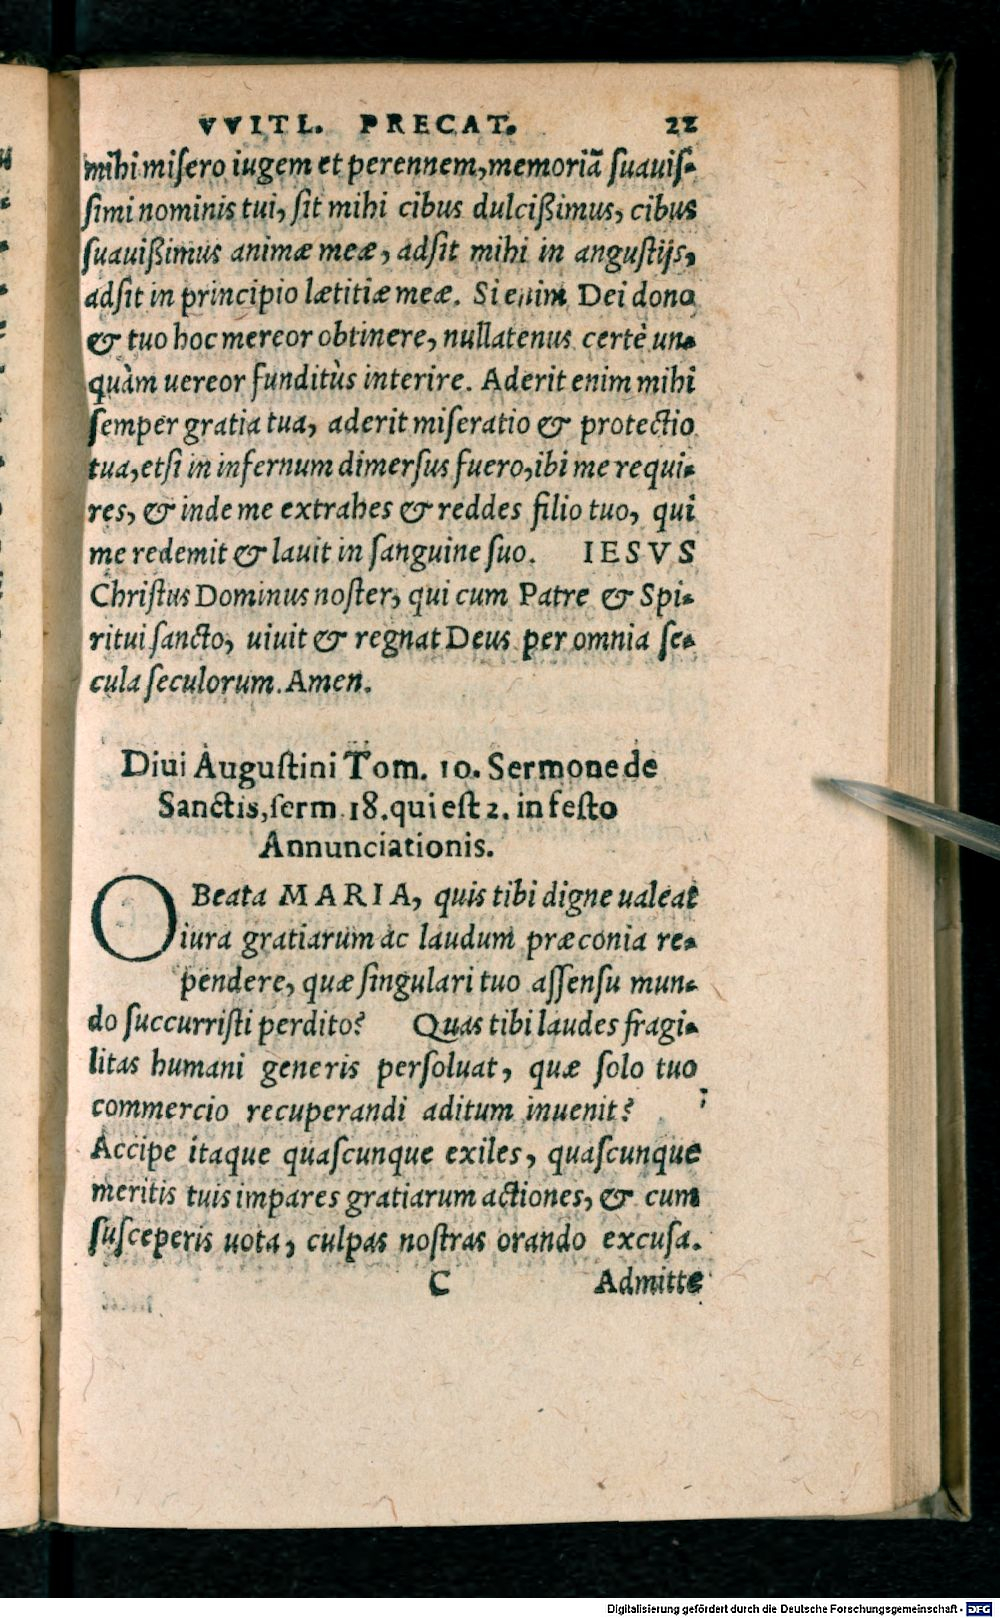 VVITL. PRECAT. 22
mihi miſero iugem et perennem, memoriã ſuauiſ-
ſimi nominis tui, ſit mihi cibus dulcißimus, cibus
ſuauißimus animæ meæ, adſit mihi in anguſtijs,
adſit in principio lætitiæ meæ. Si enim Dei dono
& tuo hoc mereor obtinere, nullatenus certè un-
quàm uereor funditùs interire. Aderit enim mihi
ſemper gratia tua, aderit miſeratio & protectio
tua, etſi in infernum dimerſus fuero, ibi me requi-
res, & inde me extrahes & reddes filio tuo, qui
me redemit & lauit in ſanguine ſuo. IESVS
Chriſtus Dominus noſter, qui cum Patre & Spi-
ritui ſancto, uiuit & regnat Deus per omnia ſe-
cula ſeculorum. Amen.
Diui Auguſtini Tom. 10. Sermone de
Sanctis, ſerm 18. qui eſt 2. in feſto
Annunciationis.
O Beata MARIA, quis tibi digne ualeat
iura gratiarum ac laudum præconia re-
pendere, quæ ſingulari tuo aſſenſu mun-
do ſuccurriſti perdito? Quas tibi laudes fragi-
litas humani generis perſoluat, quæ ſolo tuo
commercio recuperandi aditum inuenit?
Accipe itaque quaſcunque exiles, quaſcunque
meritis tuis impares gratiarum actiones, & cum
ſuſceperis uota, culpas noſtras orando excuſa.
C Admitte
Digitalisierung gefördert durch die Deutsche Forschungsgemeinschaft - DFG